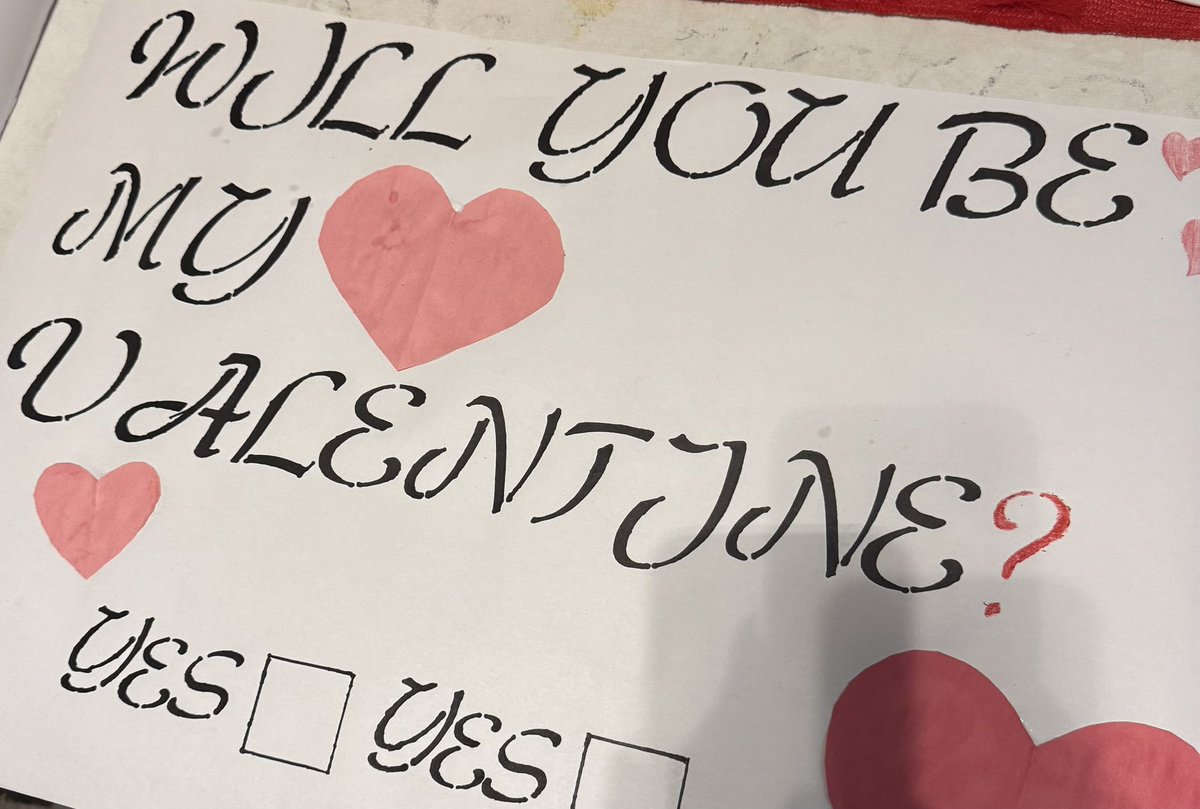 WILL YOU BE
MY
VALENTINE?
YES YES